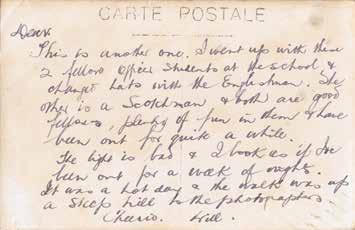 CARTE POSTALE
Dears
This is another one. I went up with these
2 fellows Officer Students at the school, &
changed hats with the Englishman. The
other is a Scotchman & both are good
fellows, plenty of fun in them & have
been out for quite a while.
The light is bad & I look as if I've
been out for a week of nights.
It was a hot day & the walk was up
a steep hill to the photographers
Cheerio. Will.